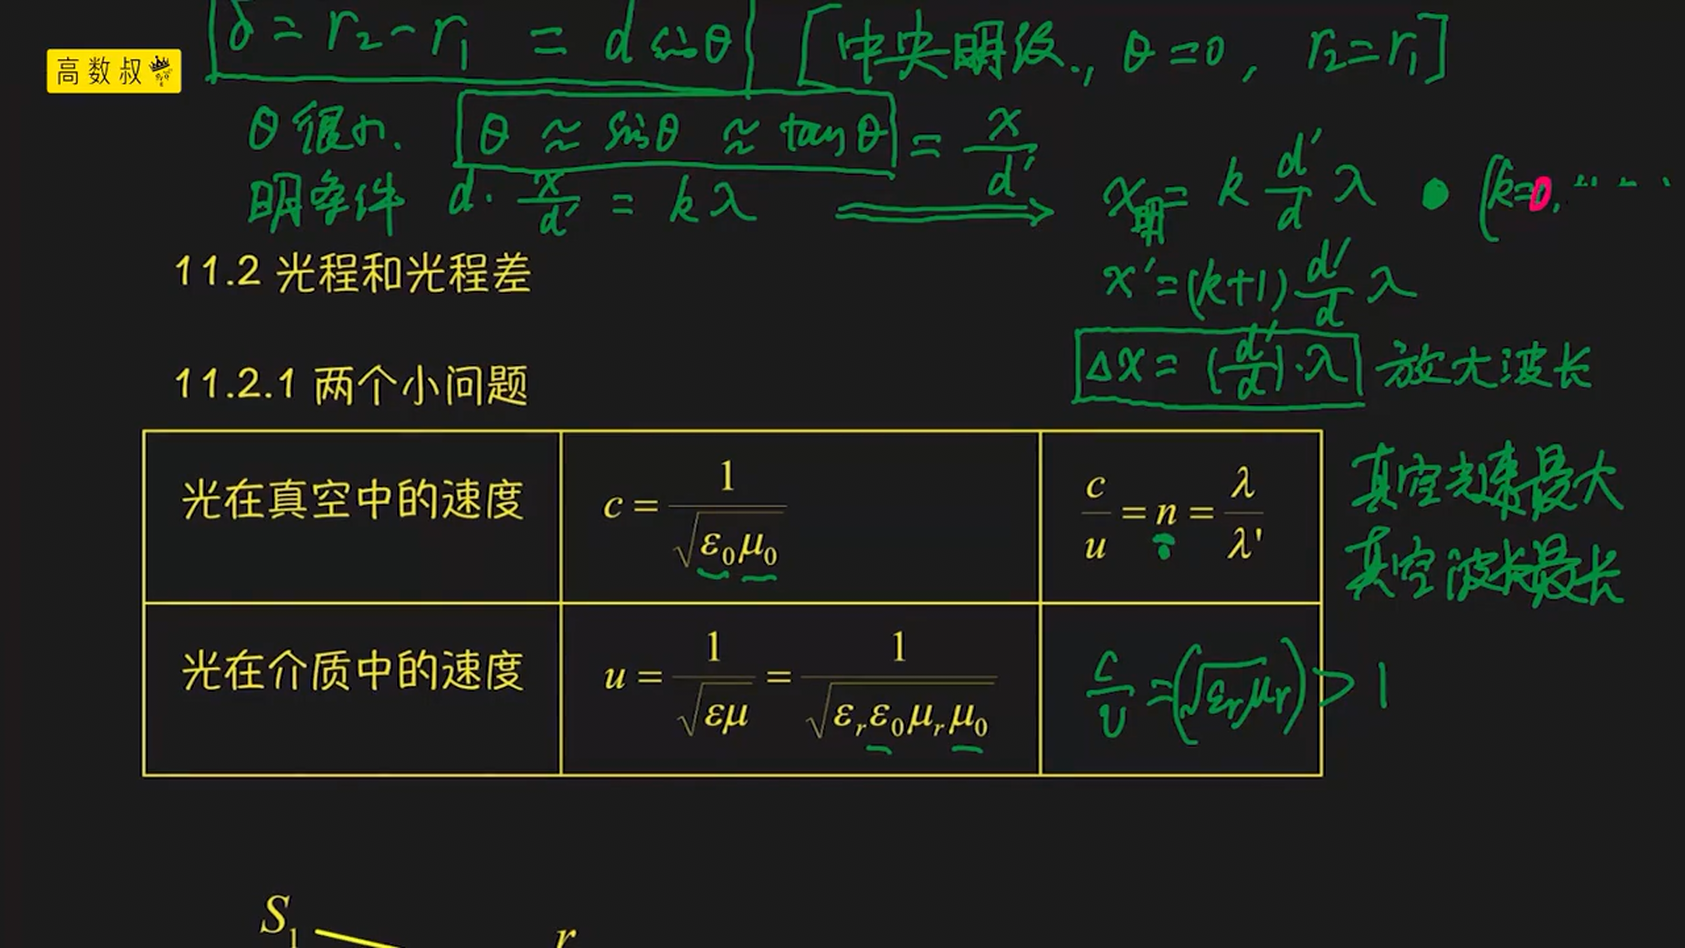 高数叔
δ = r₂ - r₁ = d sinθ [中央明级., θ=0, r₂=r₁]
θ很小. θ ≈ sinθ ≈ tanθ = x/d'
明条件 d · x/d' = kλ ⟹ x明 = k d'/d λ (k=0, ......
x' = (k+1) d'/d λ
Δx = (d'/d)·λ 放大波长
11.2 光程和光程差
11.2.1 两个小问题
光在真空中的速度 c = 1/√(ε₀μ₀) c/u = n = λ/λ'
真空光速最大
真空波长最长
光在介质中的速度 u = 1/√(εμ) = 1/√(εᵣε₀μᵣμ₀) c/v = (√(εᵣμᵣ)) > 1
S₁ r